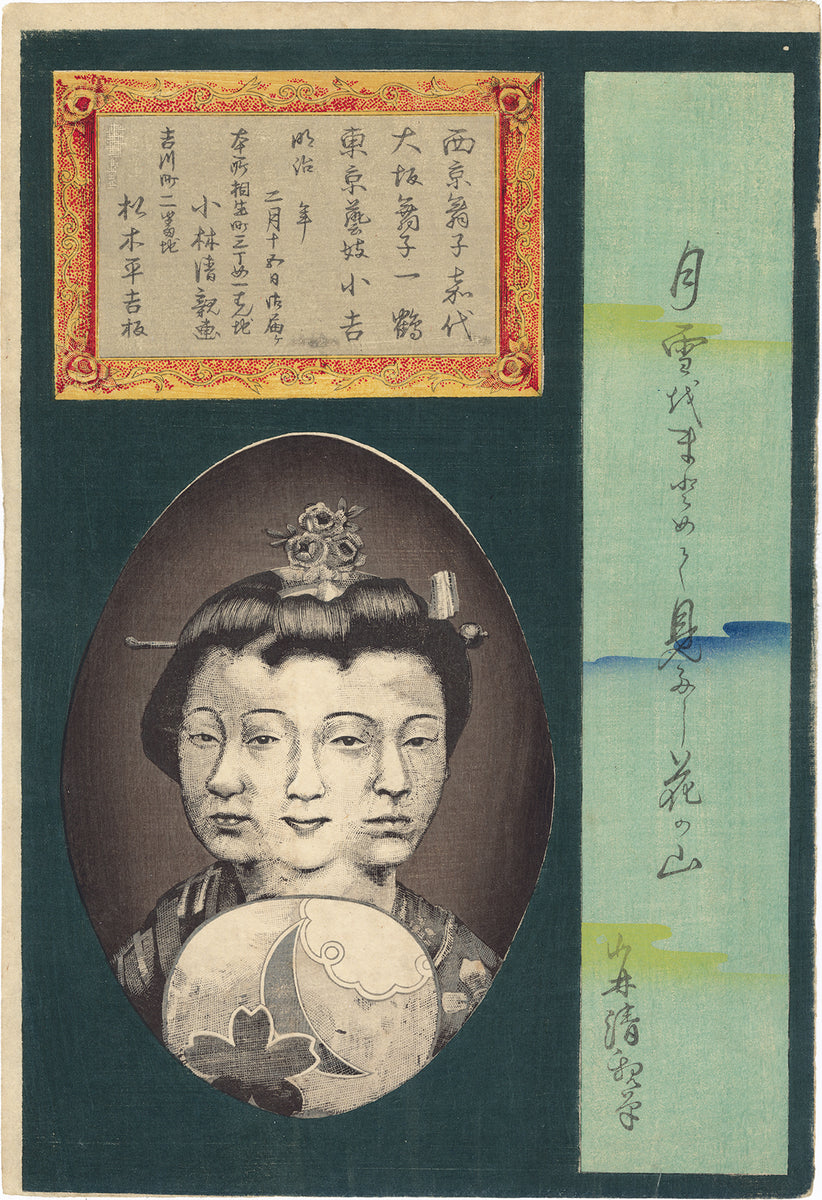 月雪越まとめて見るや花の山
小林清親筆
西京舞子嘉代
大坂舞子一鶴
東京藝妓小吉
明治 年
二月十五日御届ケ
本所相生町三丁め一番地
小林清親画
吉川町二番地
松木平吉板